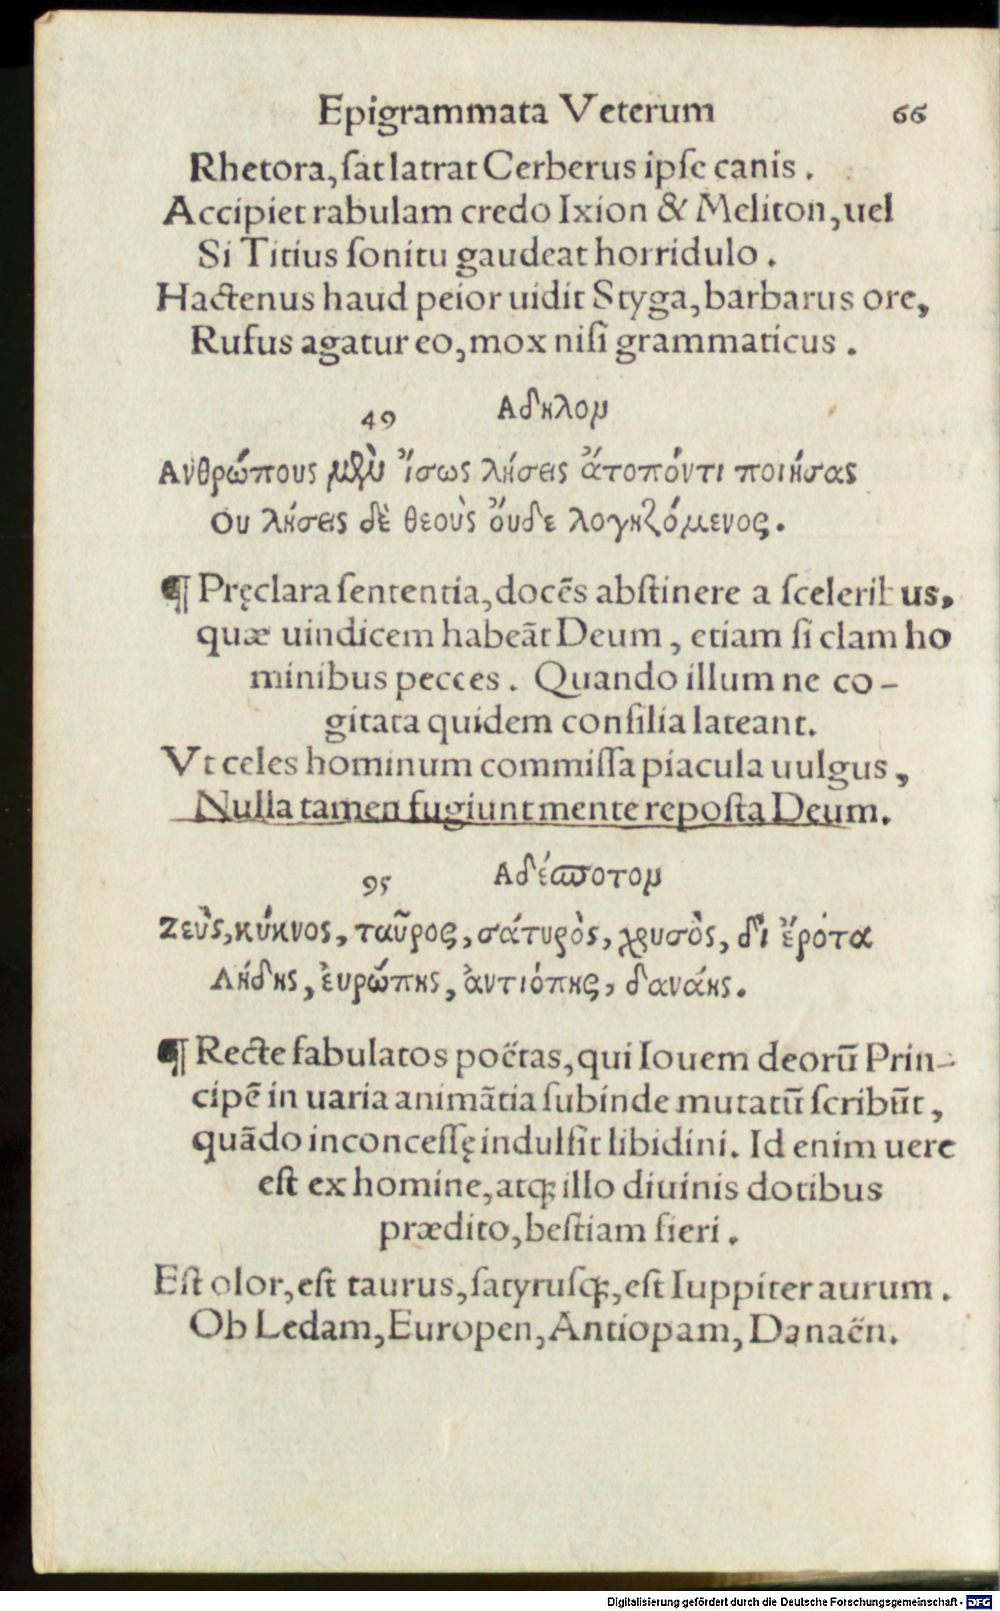 Epigrammata Veterum 66
Rhetora, ſat latrat Cerberus ipſe canis .
Accipiet rabulam credo Ixion & Meliton, uel
Si Titius ſonitu gaudeat horridulo .
Hactenus haud peior uidit Styga, barbarus ore,
Rufus agatur eo, mox niſi grammaticus .
49 Αδηλομ
Ανθρώπους μὲν ἴσως λήσεις ἄτοπόντι ποιήσας
Ου λήσεις δὲ θεοὺς ὄυδε λογηζόμενος.
¶ Pręclara ſententia, docẽs abſtinere a ſceleribus,
quæ uindicem habeãt Deum, etiam ſi clam ho
minibus pecces . Quando illum ne co-
gitata quidem conſilia lateant.
Vt celes hominum commiſſa piacula uulgus ,
Nulla tamen fugiunt mente repoſta Deum.
95 Αδέϖοτομ
Ζεὺς, κύκνος, ταῦρος, σάτυρὸς, χρυσὸς, δῖ ἔρότα
Λήδης, ἐυρώπης, ἀντιόπης, δανάης.
¶ Recte fabulatos poëtas, qui Iouem deorũ Prin-
cipẽ in uaria animãtia ſubinde mutatũ ſcribũt ,
quãdo inconceſſę indulſit libidini. Id enim uere
eſt ex homine, atꝗ; illo diuinis dotibus
prædito, beſtiam fieri .
Eſt olor, eſt taurus, ſatyruſꝗ;, eſt Iuppiter aurum .
Ob Ledam, Europen, Antiopam, Danaën.
Digitalisierung gefördert durch die Deutsche Forschungsgemeinschaft - DFG